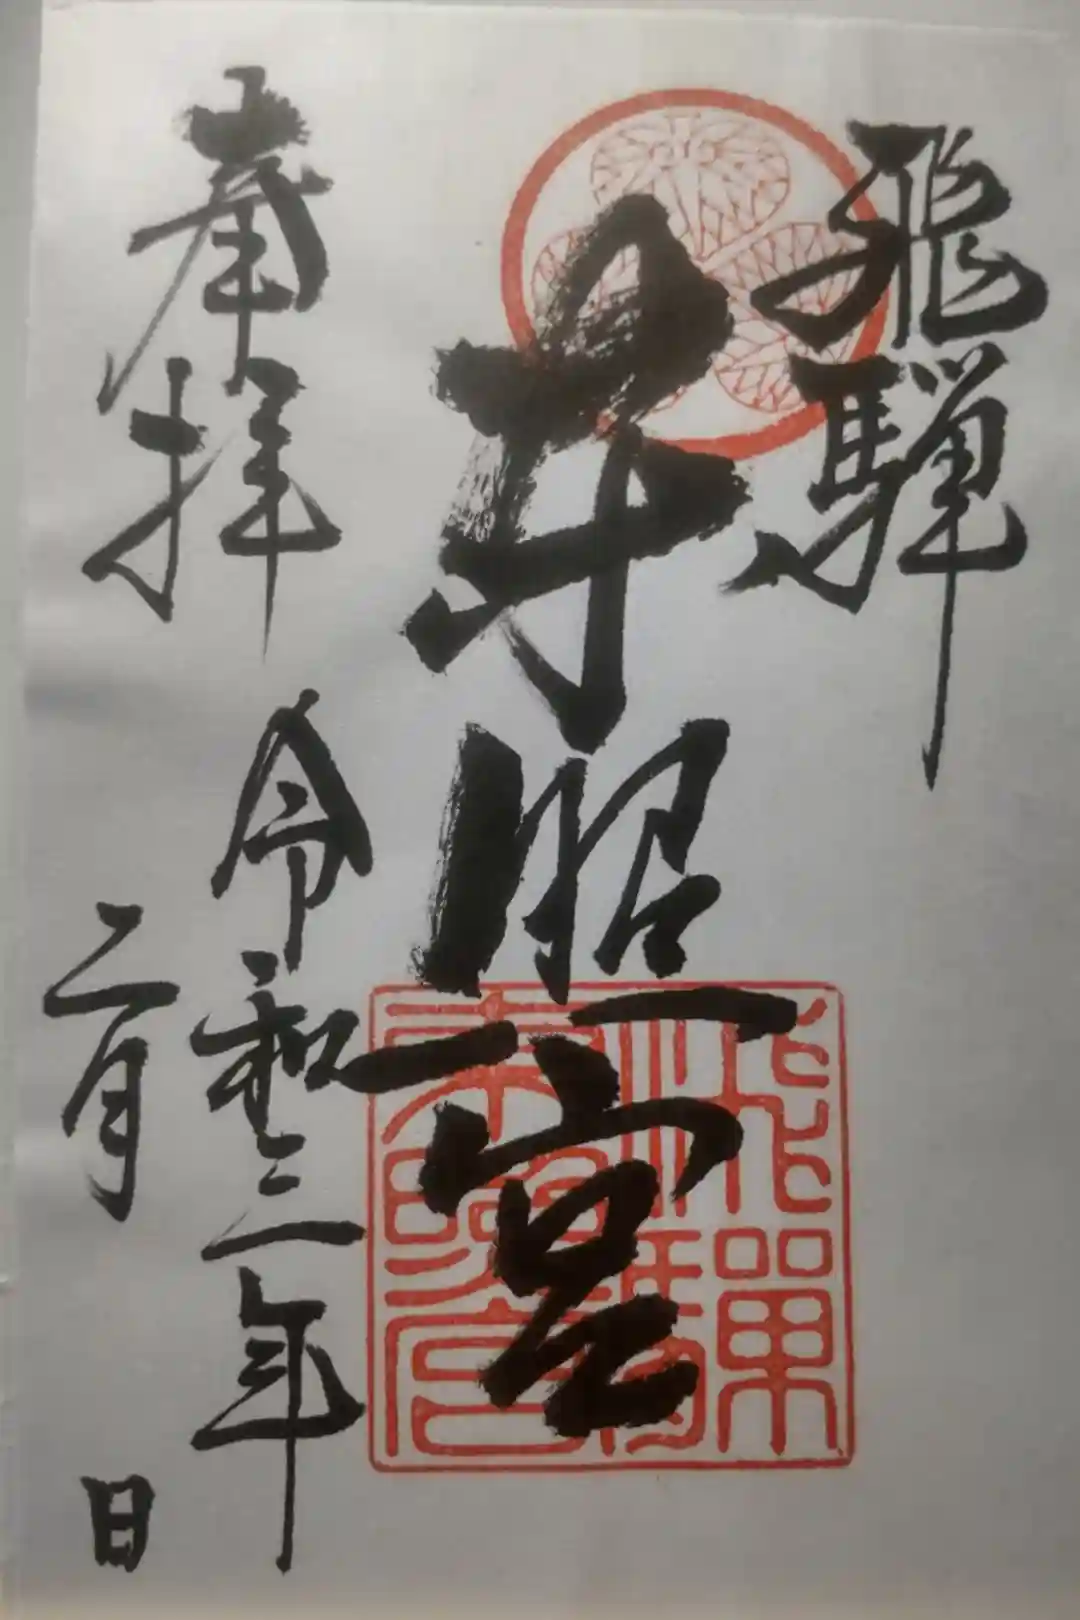 飛騨
東照宮
奉拝
令和三年
二月 日
飛驒
東照宮